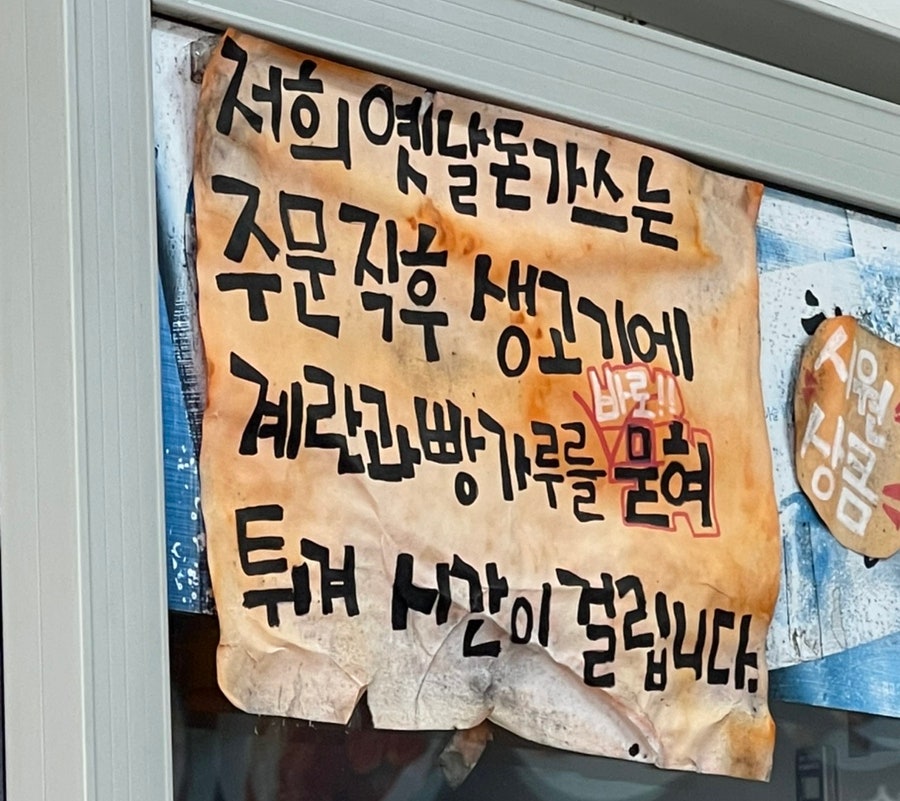 저희 옛날돈가스는
주문직후 생고기에
바로!!
계란과빵가루를 묻혀
튀겨 시간이 걸립니다.
시원
상큼